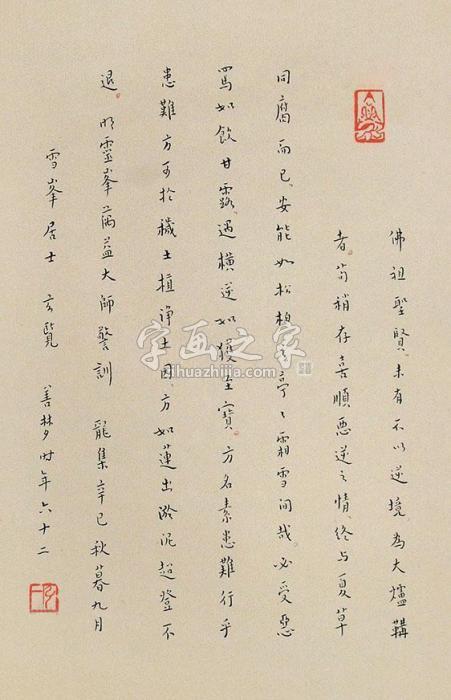 佛祖聖賢未有不以逆境為大爐鞲
者苟稍存喜順惡逆之情終与夏草
同腐而已安能如松柏之亭〻霜雪间哉必受惡
罵如飲甘露遇橫逆如獲至寶方名素患難行乎
患難方可於穢土植淨土因方如蓮出淤泥超登不
退 明靈峯蕅益大師警訓 龍集辛巳秋暮九月
雪峯居士玄覽 善夢时年六十二
字画之家
zihuazhijia.com